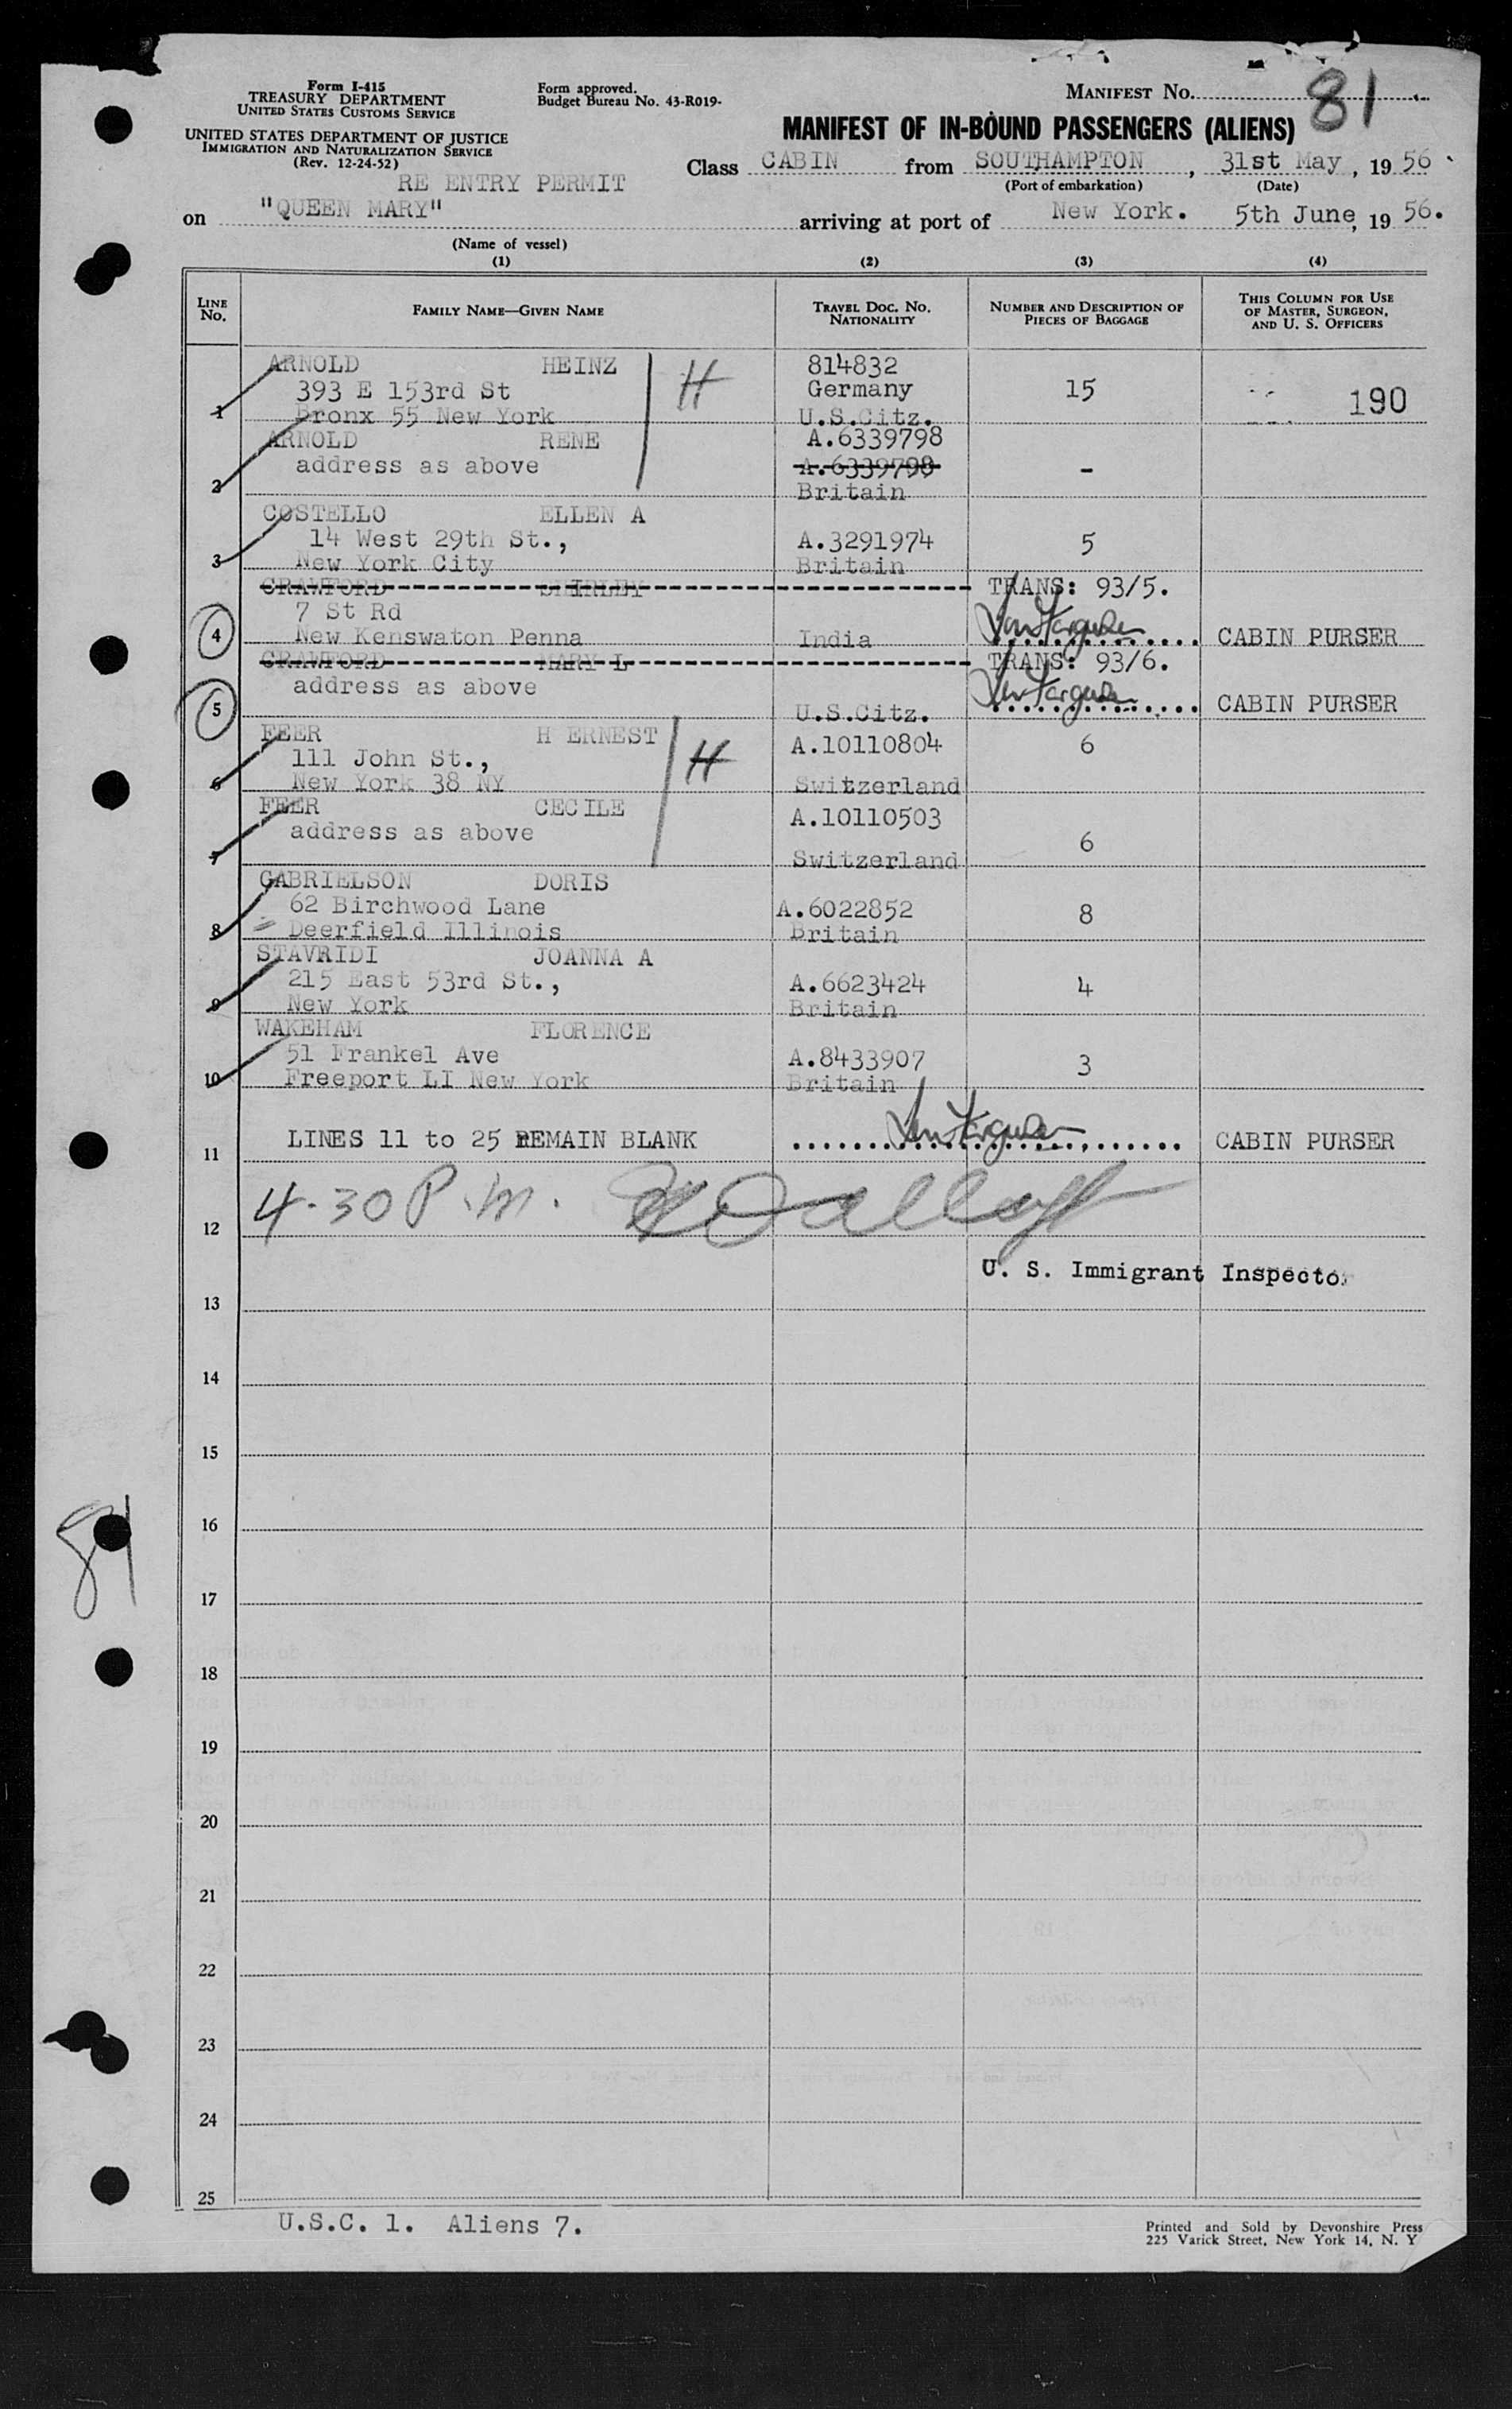 Form I-415
TREASURY DEPARTMENT
UNITED STATES CUSTOMS SERVICE
UNITED STATES DEPARTMENT OF JUSTICE
IMMIGRATION AND NATURALIZATION SERVICE
(Rev. 12-24-52)
Form approved.
Budget Bureau No. 43-R019-
MANIFEST NO. 81
MANIFEST OF IN-BOUND PASSENGERS (ALIENS)
Class CABIN from SOUTHAMPTON, 31st May, 1956
(Port of embarkation) (Date)
RE ENTRY PERMIT
on "QUEEN MARY" arriving at port of New York. 5th June, 1956.
(Name of vessel)
(1) (2) (3) (4)
LINE NO. FAMILY NAME—GIVEN NAME TRAVEL DOC. NO. NATIONALITY NUMBER AND DESCRIPTION OF PIECES OF BAGGAGE THIS COLUMN FOR USE OF MASTER, SURGEON, AND U. S. OFFICERS
ARNOLD HEINZ 814832
393 E 153rd St H Germany 15 190
1 Bronx 55 New York U.S.Citz.
ARNOLD RENE A.6339798
address as above A.6339798 -
2 Britain
COSTELLO ELLEN A
14 West 29th St., A.3291974 5
3 New York City Britain
CRAWFORD SHIRLEY TRANS: 93/5.
7 St Rd
4 New Kenswaton Penna India CABIN PURSER
CRAWFORD MARY L TRANS: 93/6.
address as above
5 U.S.Citz. CABIN PURSER
FEER H ERNEST A.10110804 6
111 John St., H
6 New York 38 NY Switzerland
FEER CECILE A.10110503
address as above 6
7 Switzerland
GABRIELSON DORIS
62 Birchwood Lane A.6022852 8
8 Deerfield Illinois Britain
STAVRIDI JOANNA A
215 East 53rd St., A.6623424 4
9 New York Britain
WAKEHAM FLORENCE
51 Frankel Ave A.8433907 3
10 Freeport LI New York Britain
11 LINES 11 to 25 REMAIN BLANK CABIN PURSER
12 4-30 P.m.
U. S. Immigrant Inspecto
13
14
15
16
81
17
18
19
20
21
22
23
24
25
U.S.C. 1. Aliens 7.
Printed and Sold by Devonshire Press
225 Varick Street, New York 14, N. Y